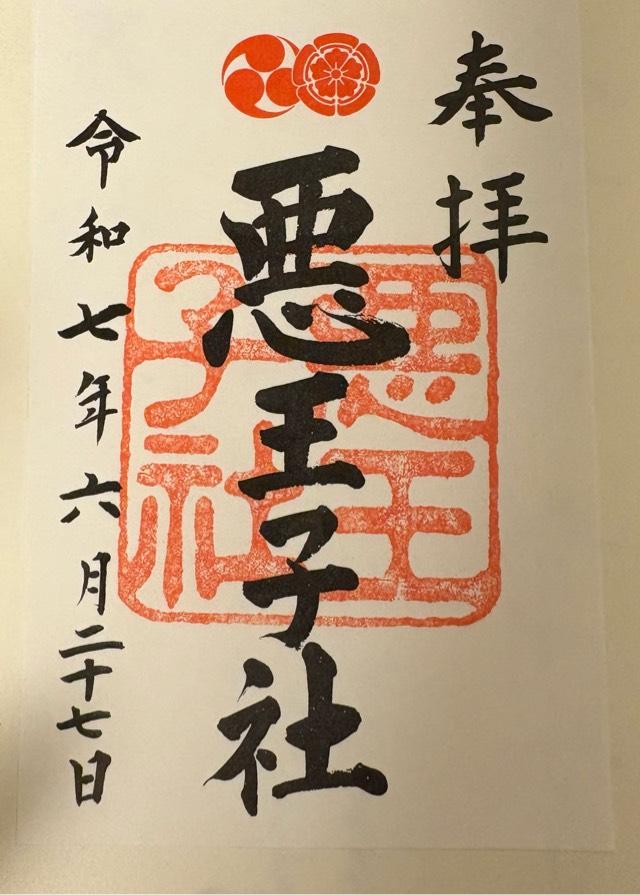 奉拝
悪王子社
悪王子社
令和七年六月二十七日